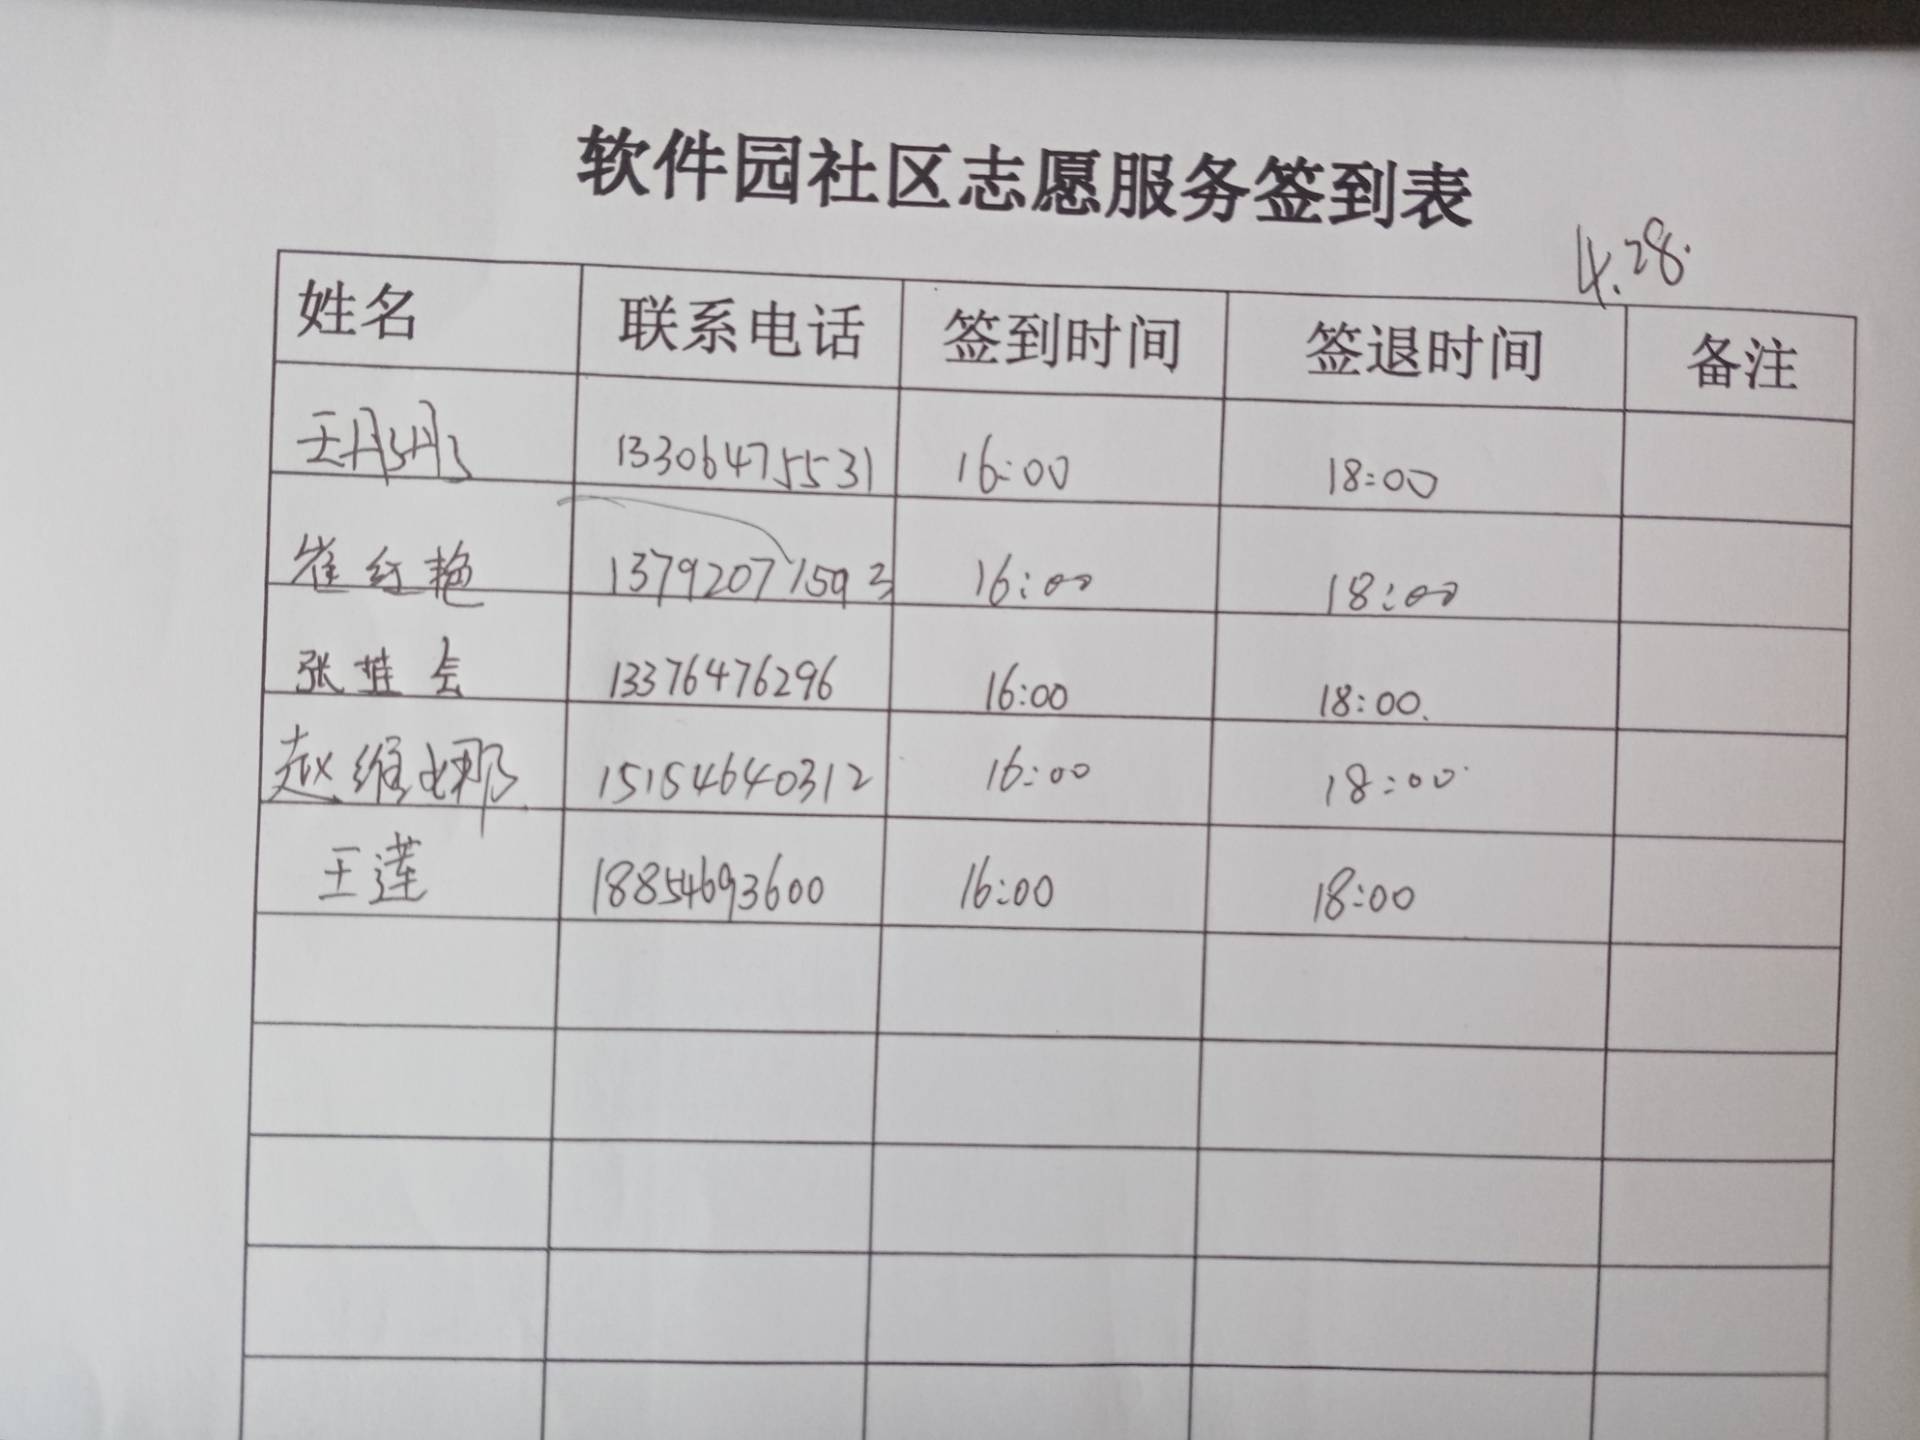 软件园社区志愿服务签到表
4.28.
姓名 联系电话 签到时间 签退时间 备注
王彤彤 13306475531 16:00 18:00
崔红艳 13792071593 16:00 18:00
张 13376476296 16:00 18:00.
赵维娜 15154640312 16:00 18:00
王莲 18854693600 16:00 18:00